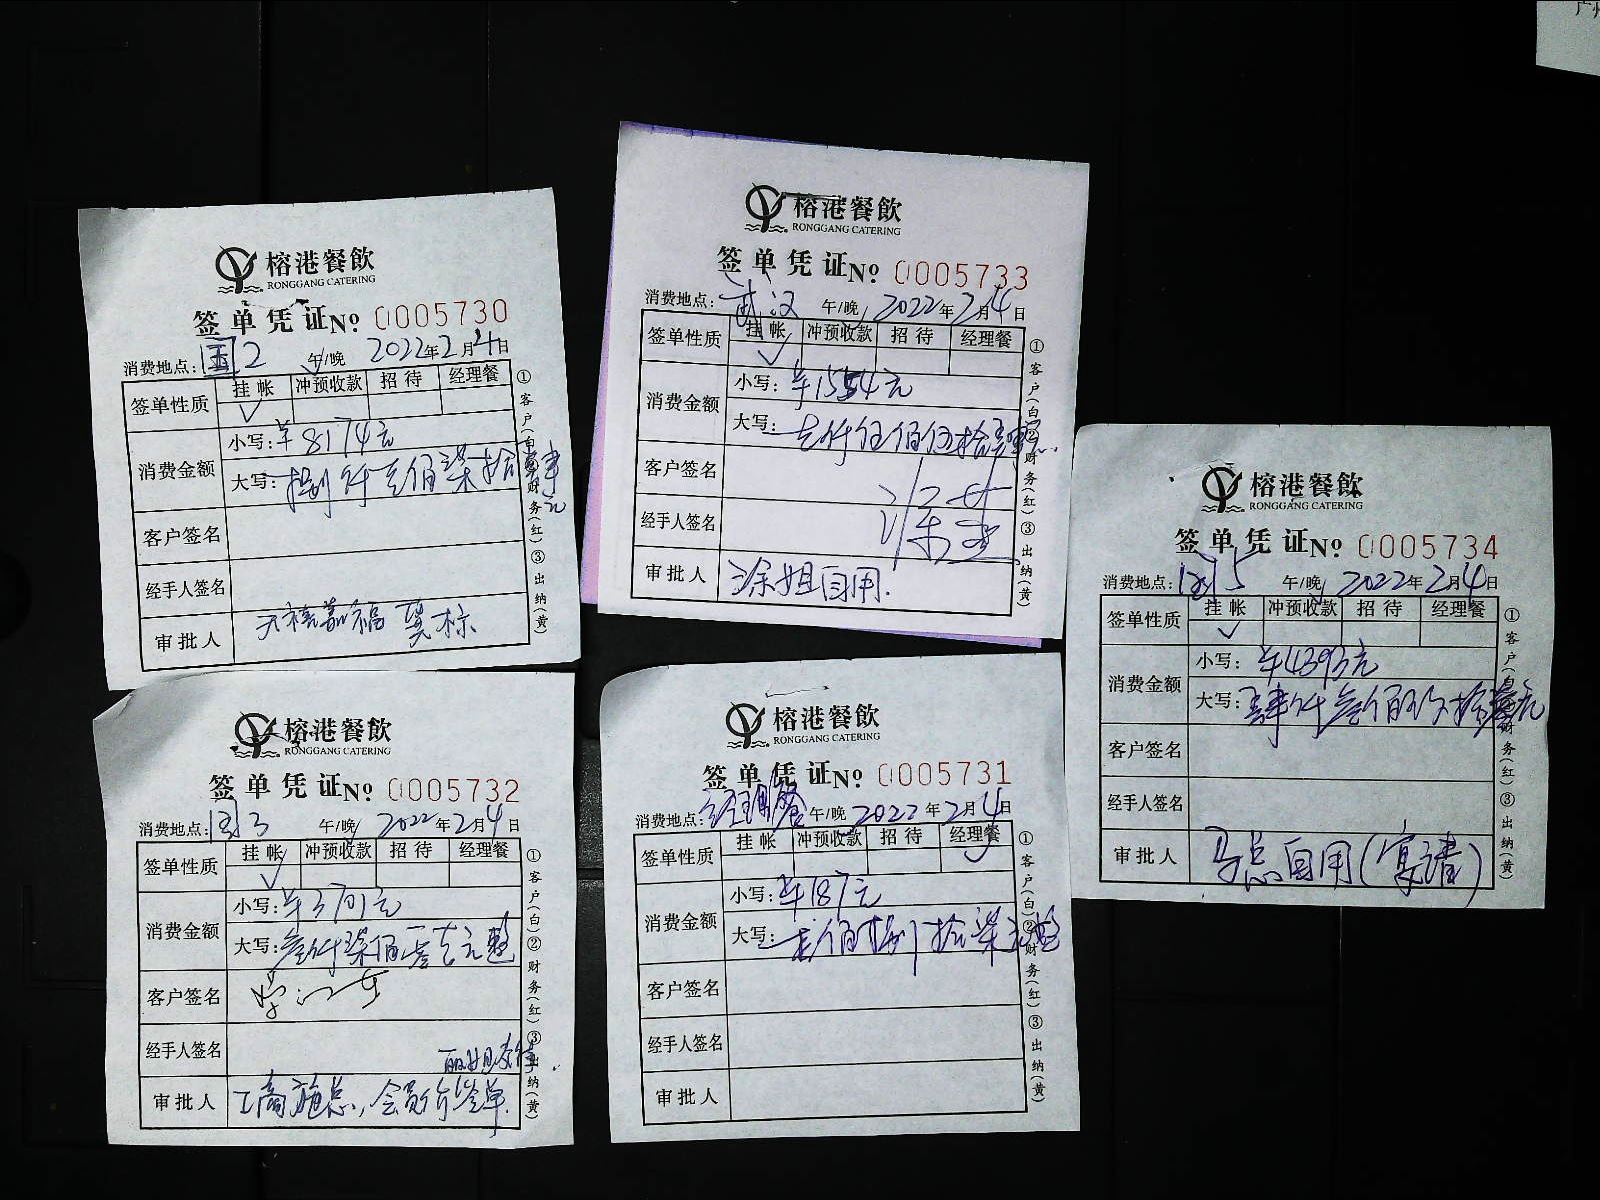 榕港餐飲
RONGGANG CATERING
签单凭证 No 0005730
消费地点: 国2 午/晚 2022年2月4日
签单性质 挂帐 冲预收款 招待 经理餐
✓
消费金额 小写: ¥8174元
大写: 捌仟壹佰柒拾肆元
客户签名
经手人签名
审批人 天禧嘉福
①客户(白)②财务(红)③出纳(黄)
榕港餐飲
RONGGANG CATERING
签单凭证 No 0005733
消费地点: 武汉 午/晚 2022年2月4日
签单性质 挂帐 冲预收款 招待 经理餐
✓
消费金额 小写: ¥1554元
大写: 壹仟伍佰伍拾肆
客户签名
经手人签名
审批人 涂姐自用.
①客户(白)②财务(红)③出纳(黄)
榕港餐飲
RONGGANG CATERING
签单凭证 No 0005734
消费地点: 国5 午/晚 2022年2月4日
签单性质 挂帐 冲预收款 招待 经理餐
✓
消费金额 小写: ¥4393元
大写: 肆仟叁佰玖拾叁元
客户签名
经手人签名
审批人 马总自用(宴请)
①客户(白)②财务(红)③出纳(黄)
榕港餐飲
RONGGANG CATERING
签单凭证 No 0005732
消费地点: 国3 午/晚 2022年2月4日
签单性质 挂帐 冲预收款 招待 经理餐
✓
消费金额 小写: ¥3701元
大写: 叁仟柒佰零壹元整
客户签名
经手人签名
审批人 工商施总,会员价签单.
①客户(白)②财务(红)③出纳(黄)
榕港餐飲
RONGGANG CATERING
签单凭证 No 0005731
消费地点: 经理餐 午/晚 2022年2月4日
签单性质 挂帐 冲预收款 招待 经理餐
✓
消费金额 小写: ¥187元
大写: 壹佰捌拾柒元整
客户签名
经手人签名
审批人
①客户(白)②财务(红)③出纳(黄)